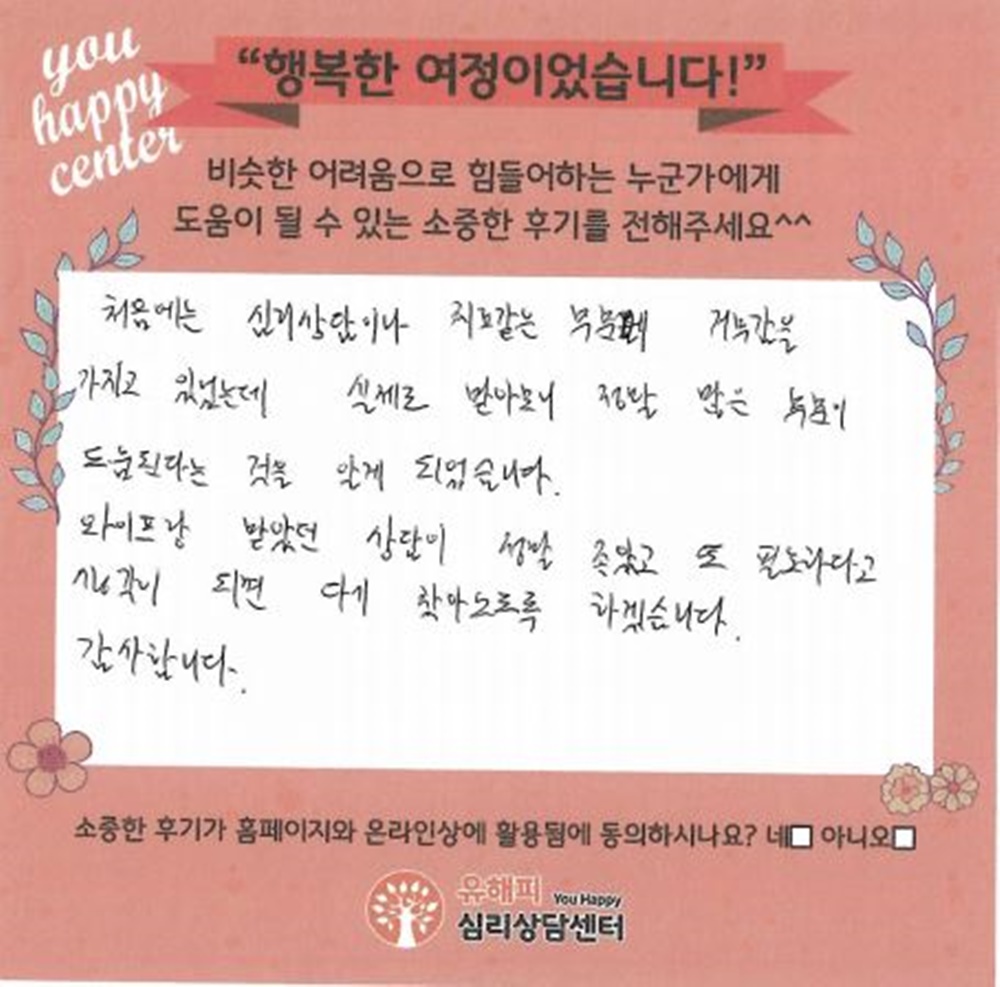 you
happy
center
“행복한 여정이었습니다!”
비슷한 어려움으로 힘들어하는 누군가에게
도움이 될 수 있는 소중한 후기를 전해주세요^^
처음에는 심리상담이나 치료같은 부분에 거부감을
가지고 있었는데 실제로 받아보니 정말 많은 부분이
도움된다는 것을 알게 되었습니다.
와이프랑 받았던 상담이 정말 좋았고 또 필요하다고
생각이 되면 다시 찾아오도록 하겠습니다.
감사합니다.
소중한 후기가 홈페이지와 온라인상에 활용됨에 동의하시나요? 네□ 아니오□
유해피 You Happy
심리상담센터